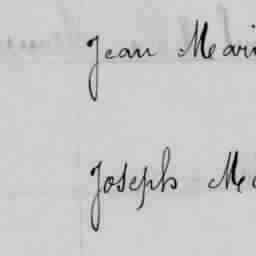 Jean Mari
Joseph Ma